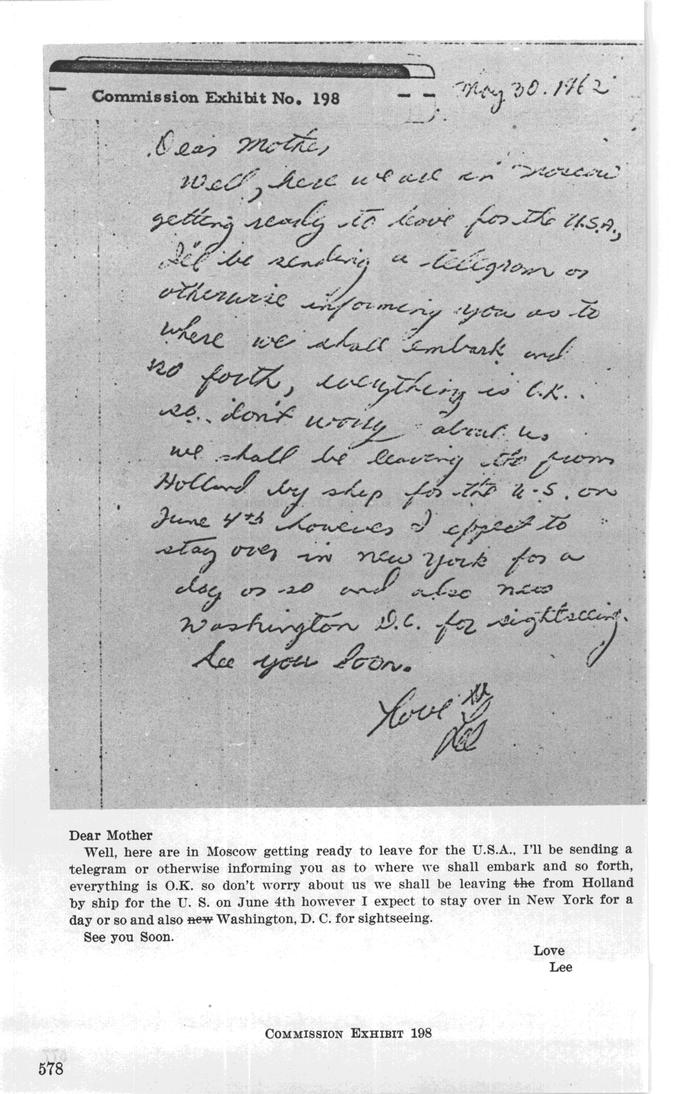 Commission Exhibit No. 198
May 30. 1962
Dear Mother,
Well, here we are in Moscow
getting ready to leave for the U.S.A.,
I'll be sending a telegram or
otherwise informing you as to
where we shall embark and
so forth, everything is O.K..
so. don't worry about us
we shall be leaving the from
Holland by ship for the U.S. on
June 4th however I expect to
stay over in New York for a
day or so and also new
Washington D.C. for sightseeing.
See you Soon.
Love
Lee
Dear Mother
Well, here are in Moscow getting ready to leave for the U.S.A., I'll be sending a
telegram or otherwise informing you as to where we shall embark and so forth,
everything is O.K. so don't worry about us we shall be leaving the from Holland
by ship for the U. S. on June 4th however I expect to stay over in New York for a
day or so and also new Washington, D. C. for sightseeing.
See you Soon.
Love
Lee
COMMISSION EXHIBIT 198
578